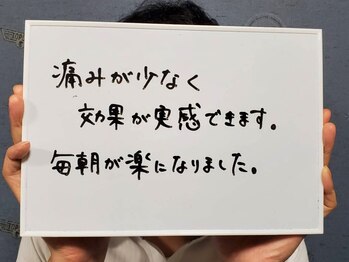 痛みが少なく
効果が実感できます。
毎朝が楽になりました。